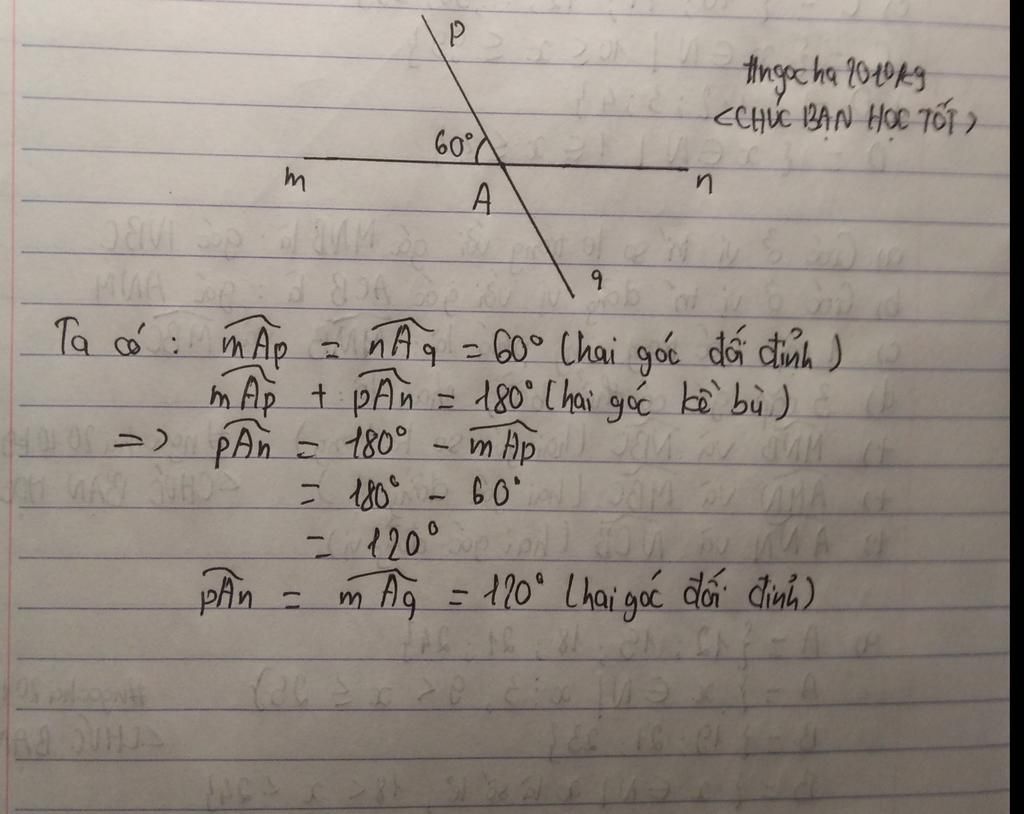 p
#ngocha2010kg
<CHÚC BẠN HỌC TỐT>
60°
m
A
n
q
Ta có: mAp = nAq = 60° (hai góc đối đỉnh)
mAp + pAn = 180° (hai góc kề bù)
=> pAn = 180° - mAp
= 180° - 60°
= 120°
pAn = mAq = 120° (hai góc đối đỉnh)